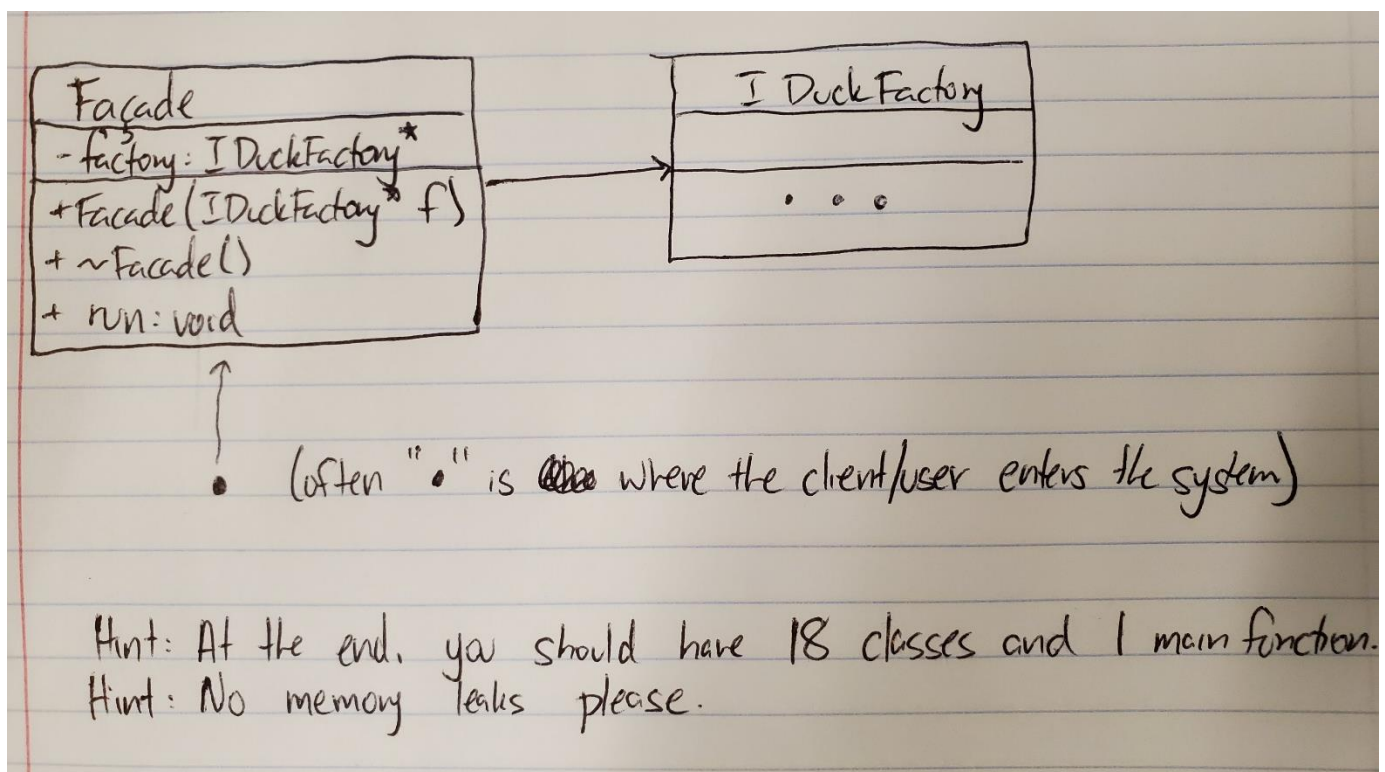 Façade
- factory: IDuckFactory*
+Facade(IDuckFactory* f)
+ ~Facade()
+ run: void
IDuckFactory
. . .
(often "•" is where the client/user enters the system)
Hint: At the end, you should have 18 classes and 1 main function.
Hint: No memory leaks please.